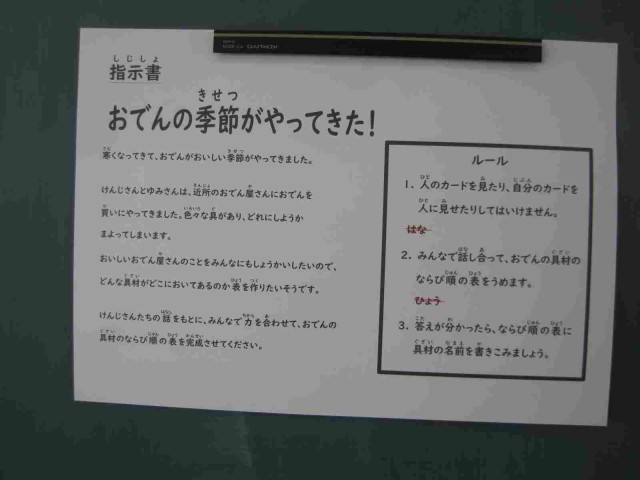 しじしょ
指示書
きせつ
おでんの季節がやってきた!
寒くなってきて、おでんがおいしい季節がやってきました。
けんじさんとゆみさんは、近所のおでん屋さんにおでんを
買いにやってきました。色々な具があり、どれにしようか
まよってしまいます。
おいしいおでん屋さんのことをみんなにもしょうかいしたいので、
どんな具材がどこにおいてあるのか表を作りたいそうです。
けんじさんたちの話をもとに、みんなで力を合わせて、おでんの
具材のならび順の表を完成させてください。
ルール
1. 人のカードを見たり、自分のカードを
人に見せたりしてはいけません。
はな
2. みんなで話し合って、おでんの具材の
ならび順の表をうめます。
ひょう
3. 答えが分かったら、ならび順の表に
具材の名前を書きこみましょう。